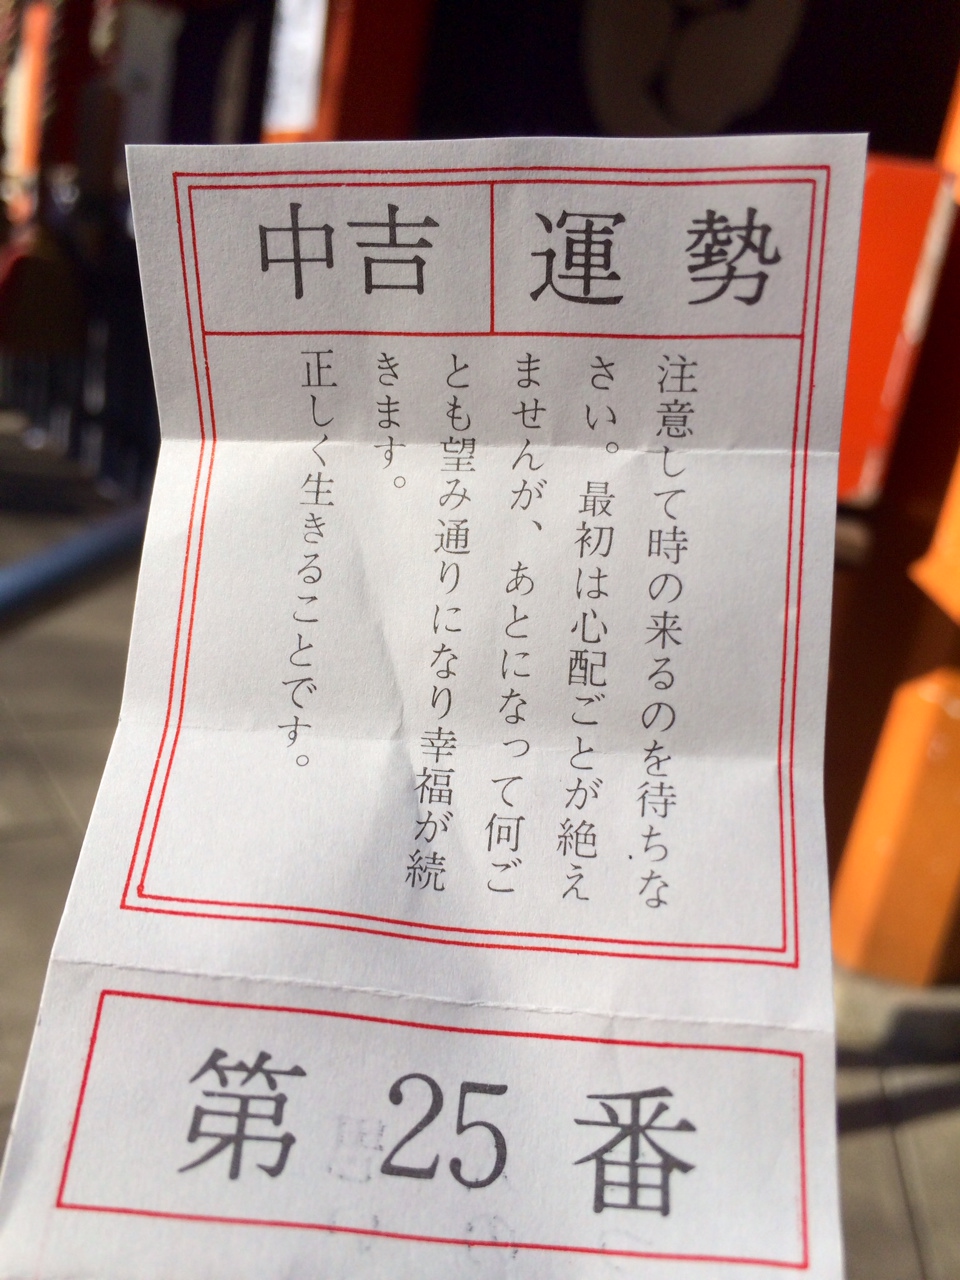 運勢
中吉
注意して時の来るのを待ちな
さい。最初は心配ごとが絶え
ませんが、あとになって何ご
とも望み通りになり幸福が続
きます。
正しく生きることです。
第25番